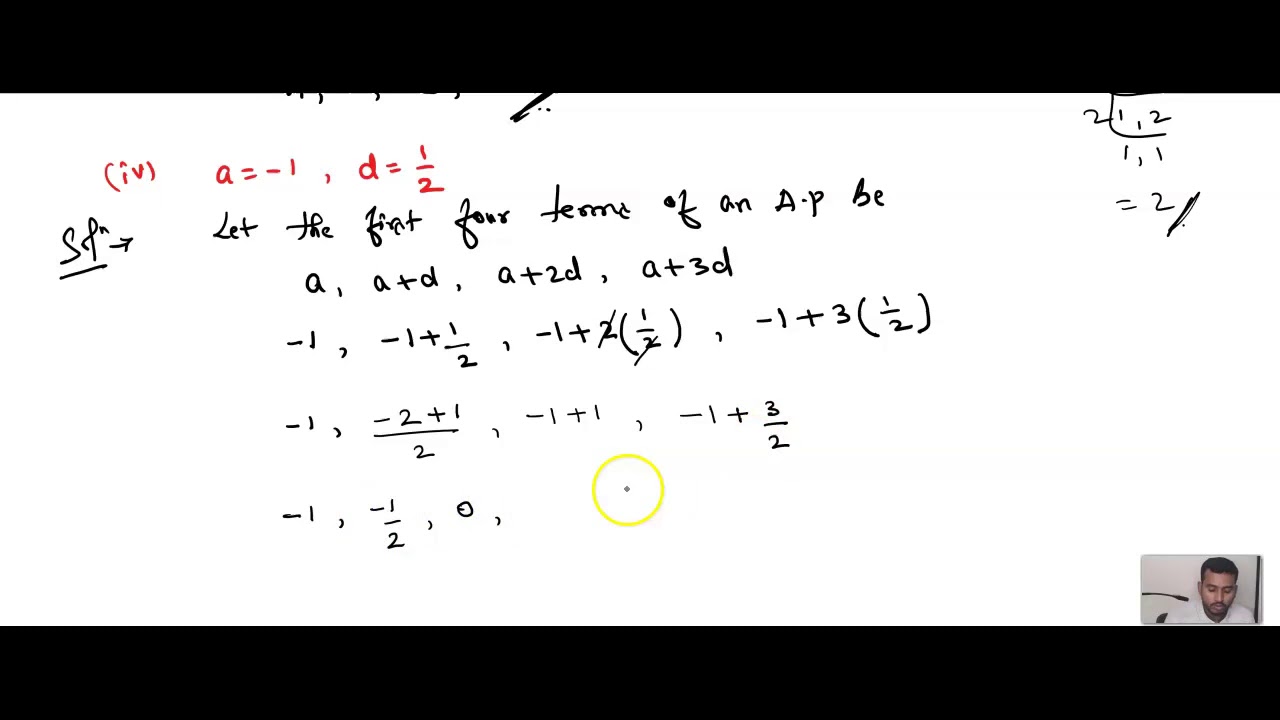 2 | 1, 2
1, 1
= 2
(iv) a = -1 , d = 1/2
Solⁿ → Let the first four terms of an A.P be
a, a+d, a+2d, a+3d
-1, -1+1/2, -1+2(1/2), -1+3(1/2)
-1, (-2+1)/2, -1+1, -1+3/2
-1, -1/2, 0,